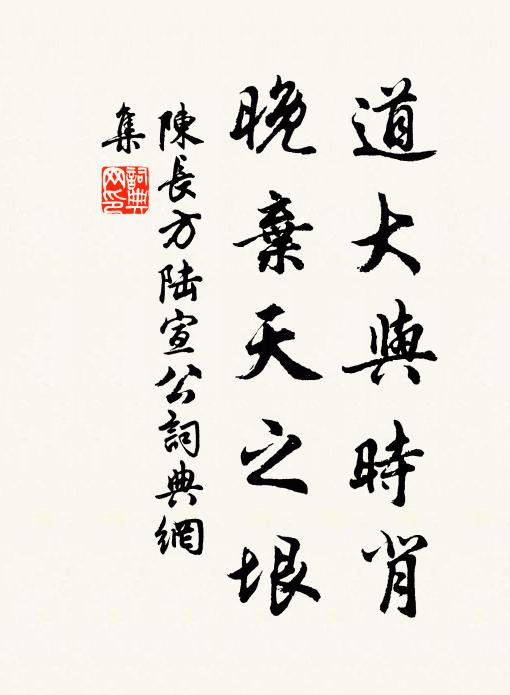 道大與時背
晚棄天之垠
陳長方陸宣公詞典網
集
詞典网印